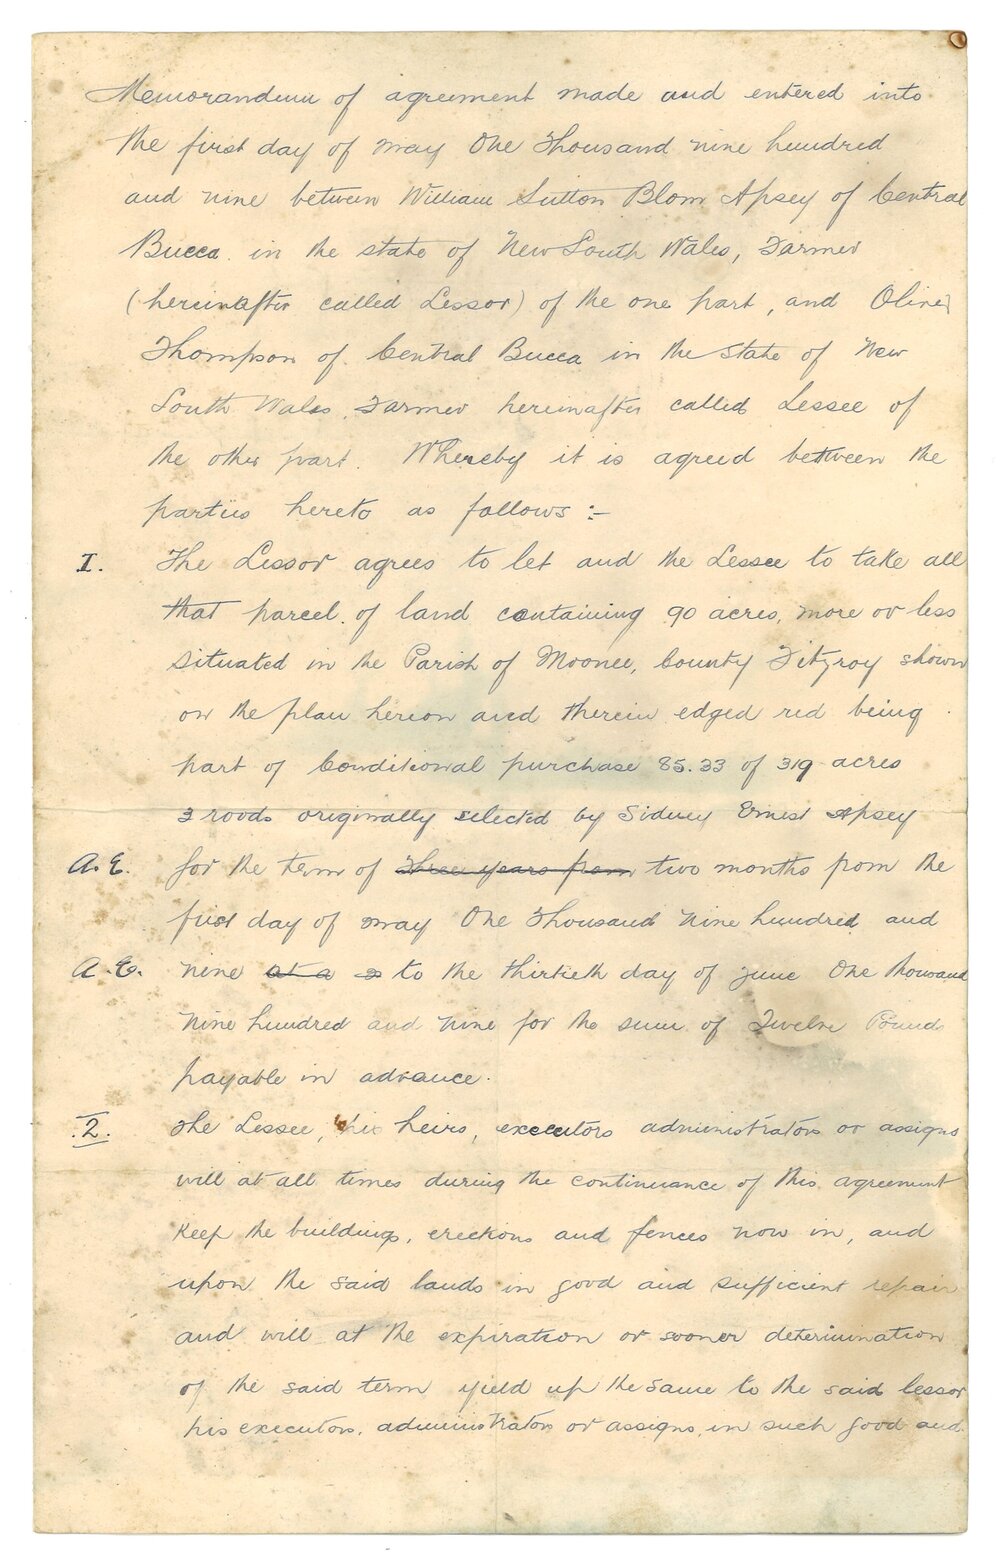 Memorandum of agreement made and entered into
the first day of May One Thousand nine hundred
and nine between William Sutton Blom Apsey of Central
Bucca in the state of New South Wales, Farmer
(hereinafter called Lessor) of the one part, and Oliver
Thompson of Central Bucca in the State of New
South Wales, Farmer hereinafter called Lessee of
the other part. Whereby it is agreed between the
parties hereto as follows :-
I. The Lessor agrees to let and the Lessee to take all
that parcel of land containing 90 acres, more or less
situated in the Parish of Moonee, County Fitzroy shown
on the plan hereon and therein edged red being
part of Conditional purchase 85.33 of 319 acres
3 roods originally selected by Sidney Ernest Apsey
A.E. for the term of Three years from two months from the
first day of May One Thousand Nine hundred and
A.E. nine at a to the thirtieth day of June One thousand
Nine hundred and Nine for the sum of Twelve Pounds
payable in advance.
.2. The Lessee, his heirs, executors administrators or assigns
will at all times during the continuance of this agreement
keep the buildings, erections and fences now in, and
upon the said lands in good and sufficient repair
and will at the expiration or sooner determination
of the said term yield up the same to the said lessor
his executors, administrators or assigns, in such good and